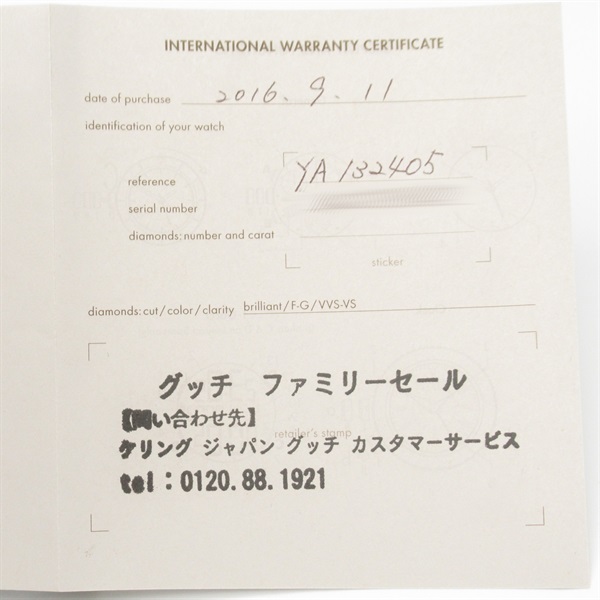 INTERNATIONAL WARRANTY CERTIFICATE
date of purchase 2016. 9. 11
identification of your watch
reference YA 132405
serial number
diamonds: number and carat
sticker
diamonds: cut / color / clarity brilliant / F-G / VVS-VS
グッチ ファミリーセール
【問い合わせ先】
retailer's stamp
ケリング ジャパン グッチ カスタマーサービス
tel：0120. 88. 1921